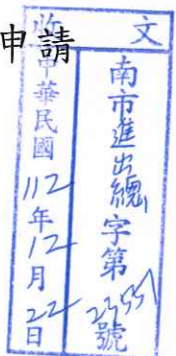 申請
收文
中華民國112年12月22日
南市進出總字第23557號